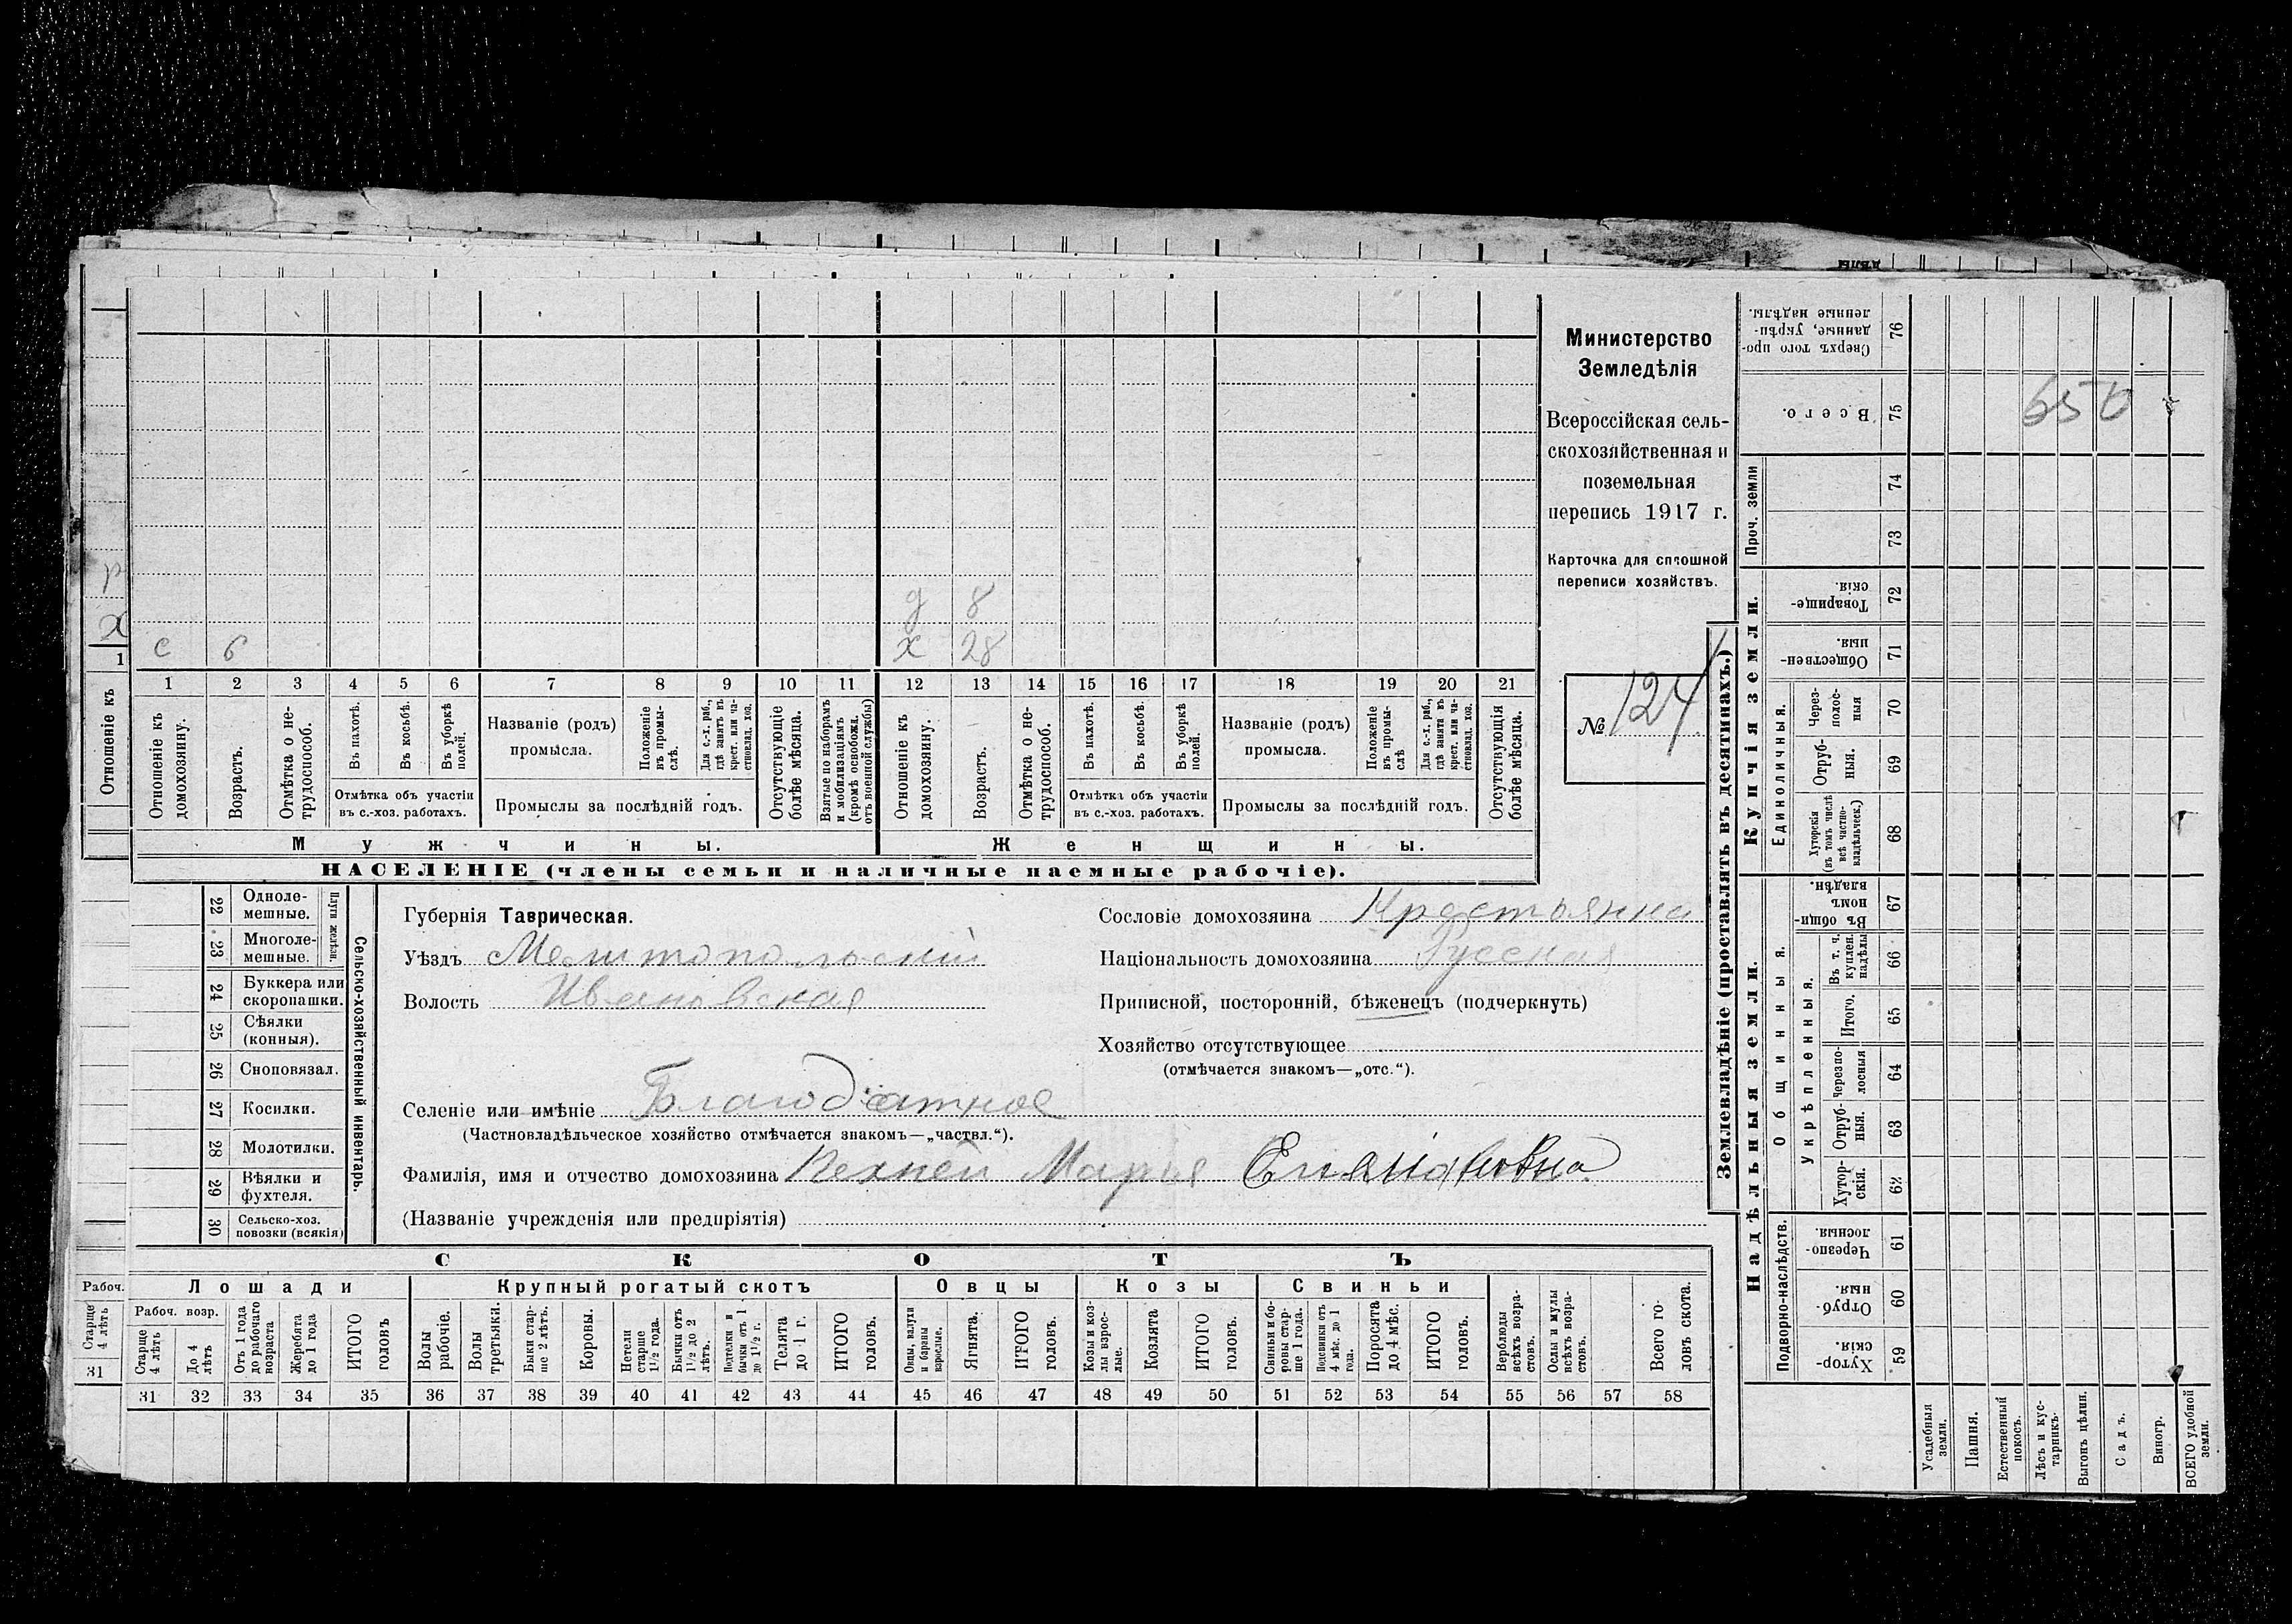 Министерство
Земледѣлія
Всероссійская сель-
скохозяйственная и
поземельная
перепись 1917 г.
Карточка для сплошной
переписи хозяйствъ.
№ 124
д 8
с 6 х 28
р
х
1
Отношеніе къ
1 2 3 4 5 6 7 8 9 10 11 12 13 14 15 16 17 18 19 20 21
Отношеніе къ домохозяину.
Возрастъ.
Отмѣтка о не-трудоспособ.
Въ пахотѣ.
Въ косьбѣ.
Въ уборкѣ полей.
Отмѣтка объ участіи
въ с.-хоз. работахъ.
Названіе (родъ)
промысла.
Положеніе въ промы-слѣ.
Для с.-х. раб., гдѣ занятъ въ крест. или ча-стновлад. хоз.
Промыслы за послѣдній годъ.
Отсутствующіе болѣе мѣсяца.
Взятые по наборамъ и мобилизаціямъ (кромѣ освобожд. отъ военной службы)
Отношеніе къ домохозяину.
Возрастъ.
Отмѣтка о не-трудоспособ.
Въ пахотѣ.
Въ косьбѣ.
Въ уборкѣ полей.
Отмѣтка объ участіи
въ с.-хоз. работахъ.
Названіе (родъ)
промысла.
Положеніе въ промы-слѣ
Для с.-х. раб., гдѣ занята въ крест. или ча-стновлад. хоз.
Промыслы за послѣдній годъ.
Отсутствующія болѣе мѣсяца.
Мужчины. Женщины.
НАСЕЛЕНІЕ (члены семьи и наличные наемные рабочіе).
Сельско-хозяйственный инвентарь.
Плуги желѣзн.
22 Одноле-мешные.
23 Многоле-мешные.
24 Буккера или скоропашки.
25 Сѣялки (конныя).
26 Сноповязал.
27 Косилки.
28 Молотилки.
29 Вѣялки и фухтеля.
30 Сельско-хоз. повозки (всякія)
Губернія Таврическая.
Уѣздъ Мелитопольскій
Волость Ивановская
Сословіе домохозяина Крестьянка
Національность домохозяина Русская
Приписной, посторонній, бѣженецъ (подчеркнуть)
Хозяйство отсутствующее
(отмѣчается знакомъ—„отс.“).
Селеніе или имѣніе Благодатное
(Частновладѣльческое хозяйство отмѣчается знакомъ—„частвл.“).
Фамилія, имя и отчество домохозяина Марія
(Названіе учрежденія или предпріятія)
СКОТЪ
Рабоч.
Старше 4 лѣтъ
31
Лошади Крупный рогатый скотъ Овцы Козы Свиньи
Рабоч. возр.
Старше 4 лѣтъ
До 4 лѣтъ
Отъ 1 года до рабочаго возраста
Жеребята до 1 года
ИТОГО головъ
Волы рабочіе.
Волы третьяки.
Быки стар-ше 2 лѣтъ.
Коровы.
Нетели старше 1½ года.
Бычки отъ 1½ до 2 лѣтъ.
Подтелки и бычки отъ 1 до 1½ г.
Телята до 1 г.
ИТОГО головъ.
Овцы, валухи и бараны взрослые.
Ягнята.
ИТОГО головъ.
Козы и коз-лы взрос-лые.
Козлята
ИТОГО головъ.
Свиньи и бо-ровы стар-ше 1 года.
Подсвинки отъ 4 мѣс. до 1 года.
Поросята до 4 мѣс.
ИТОГО головъ.
Верблюды всѣхъ возра-стовъ.
Ослы и мулы всѣхъ возра-стовъ.
Всего го-ловъ скота.
31 32 33 34 35 36 37 38 39 40 41 42 43 44 45 46 47 48 49 50 51 52 53 54 55 56 57 58
Землевладѣніе (проставлять въ десятинахъ.)
Надѣльныя земли. Купчія земли.
Проч. земли
Подворно-наслѣдств.
Общинныя.
укрѣпленныя.
Единоличныя.
76 Сверхъ того про-данные, укрѣп-ленные надѣлы.
75 Всего.
74
73
72 Товарище-скія.
71 Обществен-ныя.
70 Через-полос-ныя
69 Отруб-ныя.
68 Хуторскія (въ томъ числѣ всѣ частно-владѣльческ.)
67 Въ общин-номъ владѣн.
66 Въ т. ч. куплен. надѣлы
65 Итого.
64 Черезпо-лосныя
63 Отруб-ныя.
62 Хутор-скія.
61 Черезпо-лосныя.
60 Отруб-ныя.
59 Хутор-скія.
Усадебныя земли.
Пашня.
Естественный покосъ.
Лѣсъ и кус-тарникъ.
Выгонъ цѣлин.
Садъ.
Виногр.
ВСЕГО удобной земли.